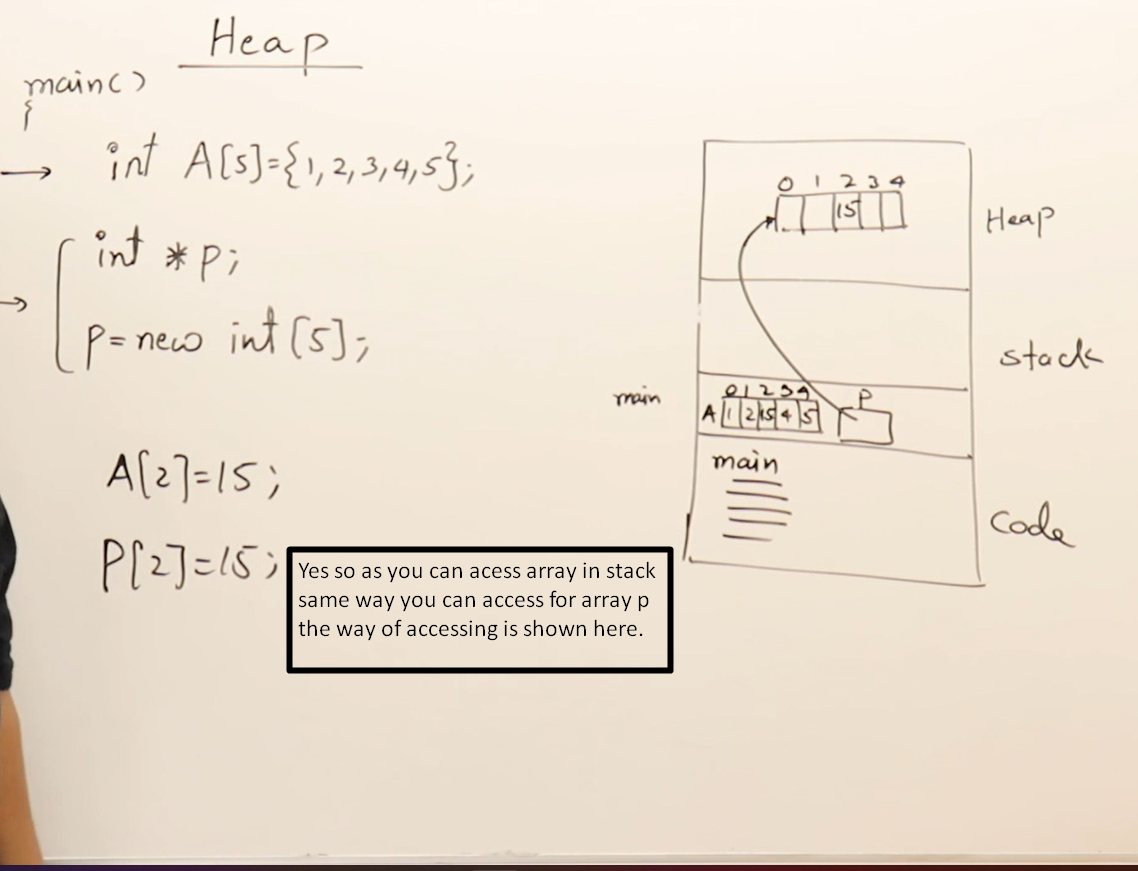 Heap
main()
{
int A[5]={1,2,3,4,5};
int *p;
p=new int[5];
A[2]=15;
P[2]=15;
Yes so as you can acess array in stack
same way you can access for array p
the way of accessing is shown here.
0 1 2 3 4
15
Heap
stack
main
0 1 2 3 4
A 1 2 15 4 5
P
main
code